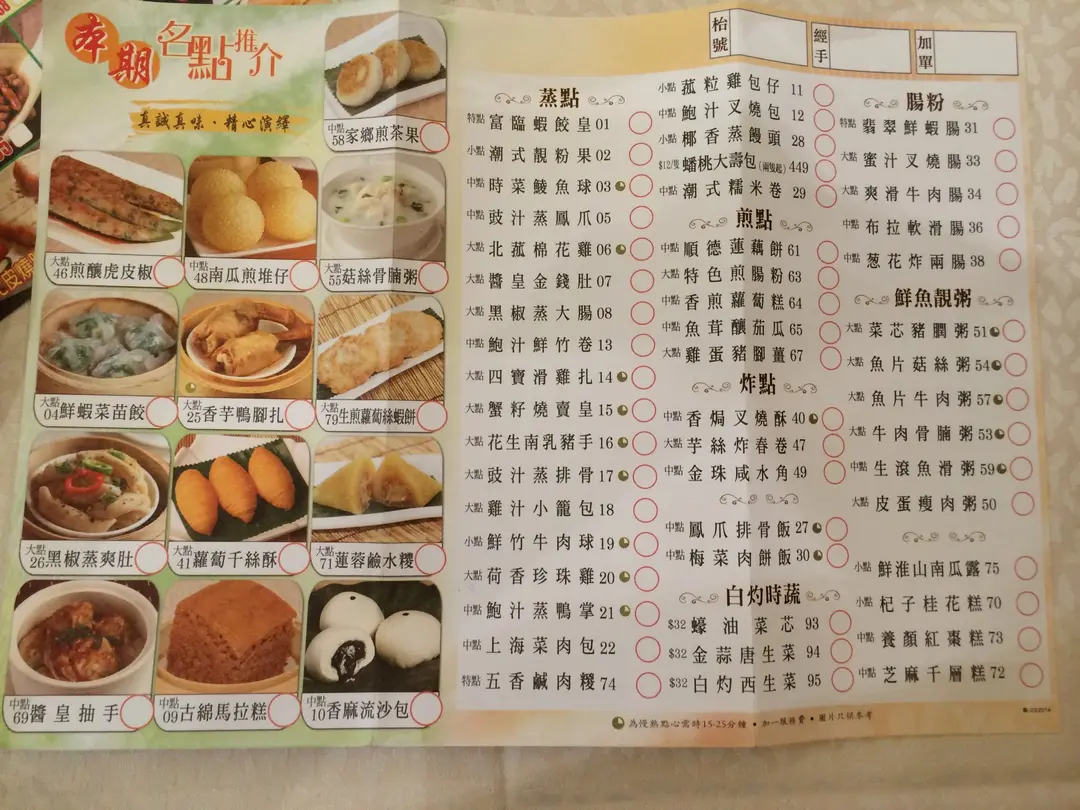 本期名點推介
真誠真味·精心演繹
中點 58家鄉煎茶果
大點 46煎釀虎皮椒
中點 48南瓜煎堆仔
大點 55菇絲骨腩粥
大點 04鮮蝦菜苗餃
大點 25香芋鴨腳扎
大點 79生煎蘿蔔絲蝦餅
大點 26黑椒蒸爽肚
大點 41蘿蔔千絲酥
大點 71蓮蓉鹼水糉
中點 69醬皇抽手
中點 09古綿馬拉糕
中點 10香麻流沙包
枱號
經手
加單
蒸點
特點 富臨蝦餃皇 01
小點 潮式靚粉果 02
中點 時菜鯪魚球 03
中點 豉汁蒸鳳爪 05
大點 北菰棉花雞 06
大點 醬皇金錢肚 07
大點 黑椒蒸大腸 08
中點 鮑汁鮮竹卷 13
大點 四寶滑雞扎 14
大點 蟹籽燒賣皇 15
大點 花生南乳豬手 16
大點 豉汁蒸排骨 17
大點 雞汁小籠包 18
小點 鮮竹牛肉球 19
大點 荷香珍珠雞 20
中點 鮑汁蒸鴨掌 21
中點 上海菜肉包 22
特點 五香鹹肉糉 74
小點 菰粒雞包仔 11
中點 鮑汁叉燒包 12
小點 椰香蒸饅頭 28
$12/隻 蟠桃大壽包(兩隻起) 449
中點 潮式糯米卷 29
煎點
中點 順德蓮藕餅 61
大點 特色煎腸粉 63
中點 香煎蘿蔔糕 64
中點 魚茸釀茄瓜 65
大點 雞蛋豬腳薑 67
炸點
中點 香焗叉燒酥 40
大點 芋絲炸春卷 47
中點 金珠咸水角 49
中點 鳳爪排骨飯 27
中點 梅菜肉餅飯 30
白灼時蔬
$32 蠔油菜芯 93
$32 金蒜唐生菜 94
$32 白灼西生菜 95
腸粉
特點 翡翠鮮蝦腸 31
大點 蜜汁叉燒腸 33
大點 爽滑牛肉腸 34
中點 布拉軟滑腸 36
中點 葱花炸兩腸 38
鮮魚靚粥
大點 菜芯豬膶粥 51
大點 魚片菇絲粥 54
大點 魚片牛肉粥 57
大點 牛肉骨腩粥 53
中點 生滾魚滑粥 59
大點 皮蛋瘦肉粥 50
小點 鮮淮山南瓜露 75
小點 杞子桂花糕 70
中點 養顏紅棗糕 73
中點 芝麻千層糕 72
為慢熱點心需時15-25分鐘 • 加一服務費 • 圖片只供參考